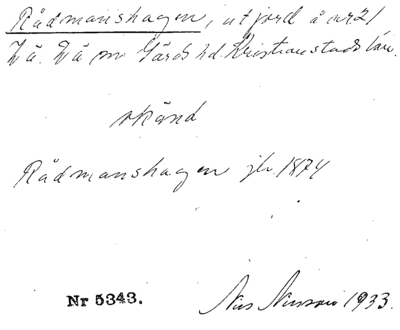 Rådmanshagen, utjord å nr 21
Vä. Vä sn Gärds hd. Kristianstads län.
okänd
Rådmanshagen jb. 1874
Nr 5343.
Nils 1933.